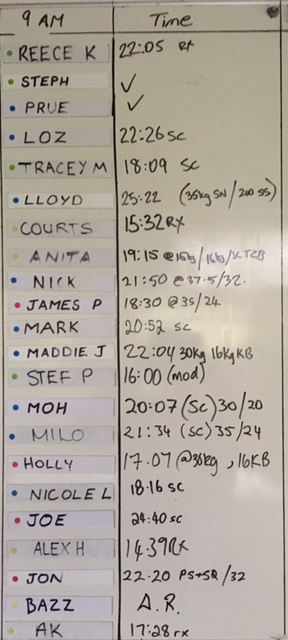 9 AM Time
REECE K 22:05 Rx
STEPH ✓
PRUE ✓
LOZ 22:26 SC
TRACEY M 18:09 SC
LLOYD 25:22 (35kg SN/200 SS)
COURTS 15:32 RX
ANITA 19:15 @15kg/16kg/SC T2B
NICK 21:50 @37.5/32.
JAMES P 18:30 @35/24
MARK 20:52 SC
MADDIE J 22:04 30kg 16kg KB
STEF P 16:00 (mod)
MOH 20:07 (SC) 30/20
MILO 21:34 (SC) 35/24
HOLLY 17.07 (@38kg, 16KB
NICOLE L 18:16 SC
JOE 24:40 SC
ALEX H 14:39 RX
JON 22.20 PS+SQ/32
BAZZ A.R.
AK 17:28 rx